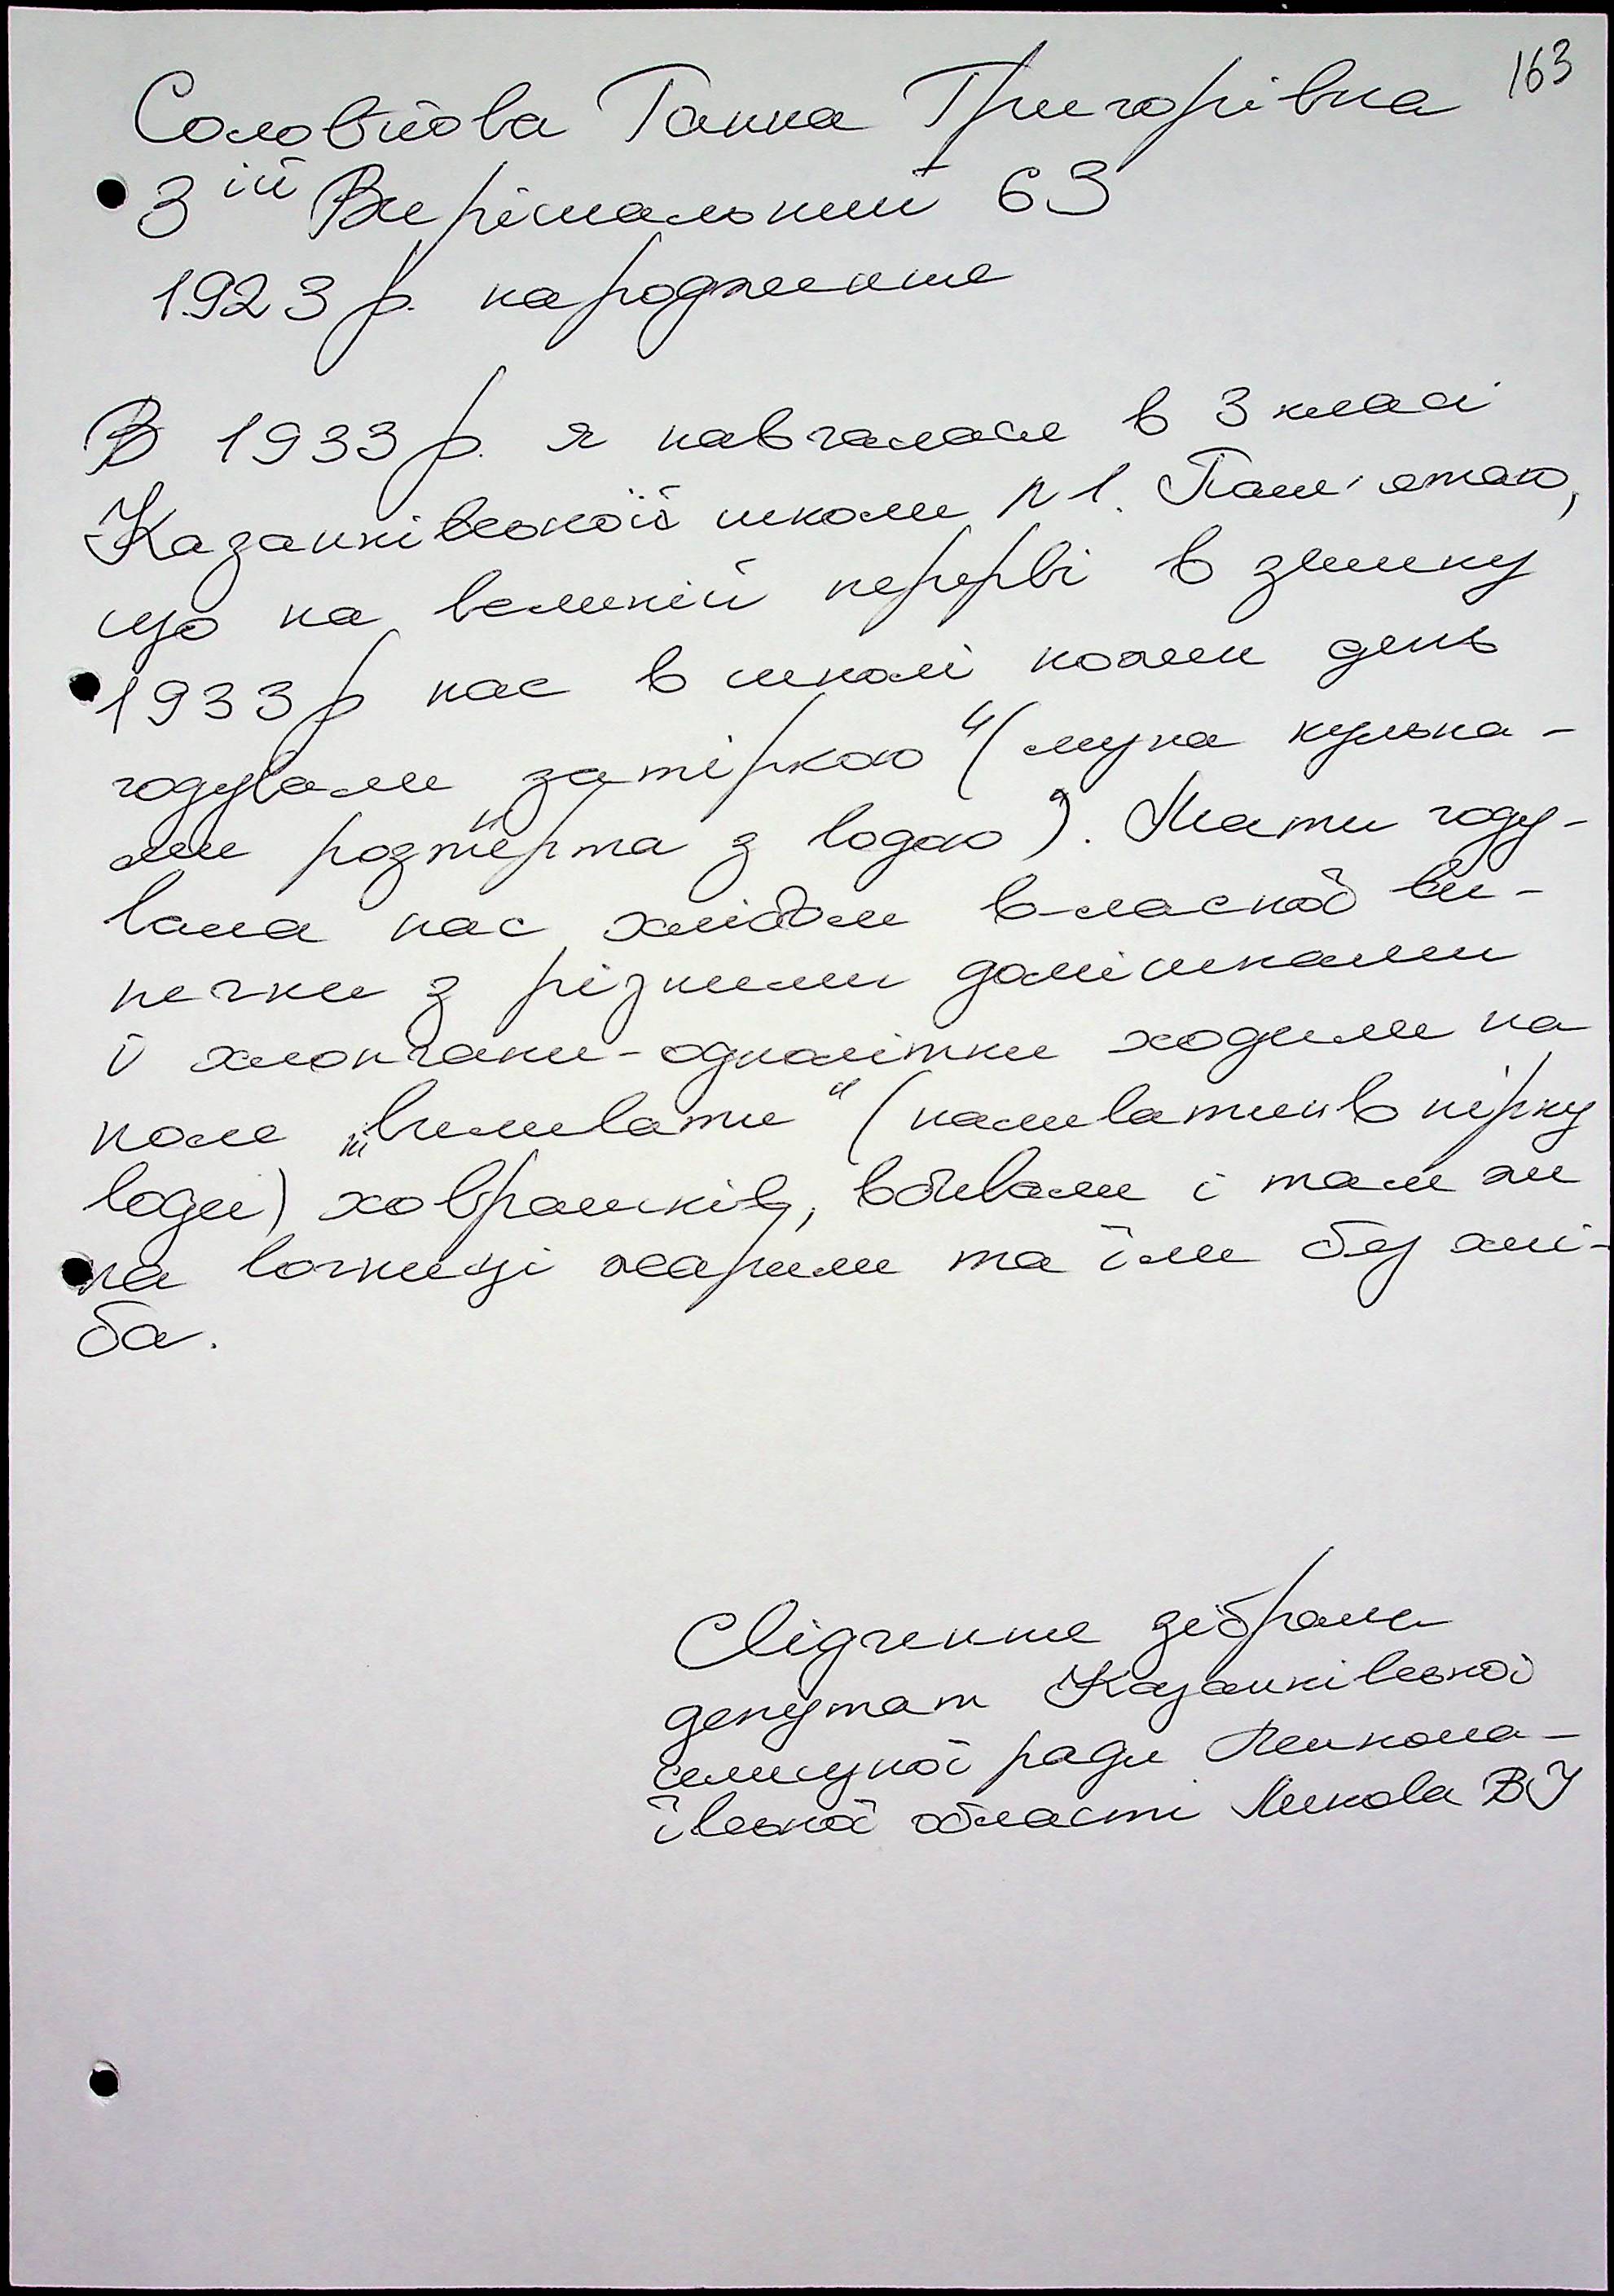 163
Соловйова Ганна Григорівна
3 ій Вирішальний 63
1923 р. народження
В 1933 р. я навчалася в 3 класі
Казанківської школи №1. Пам'ятаю,
що на великій перерві в зимку
1933 р нас в школі кожен день
годували „затіркою“ (мука кулька-
ми розтерта з водою). Мати году-
вала нас хлібом власної ви-
печки з різними домішками
і хлопчаки-однолітки ходили на
поле „виливати“ (наливати в нірку
води) ховрашків, вбивали і там же
на вогнищі жарили та їли без хлі-
ба.
Свідчення зібрала
депутат Казанківської
селищної ради Микола-
ївської області Микова В І